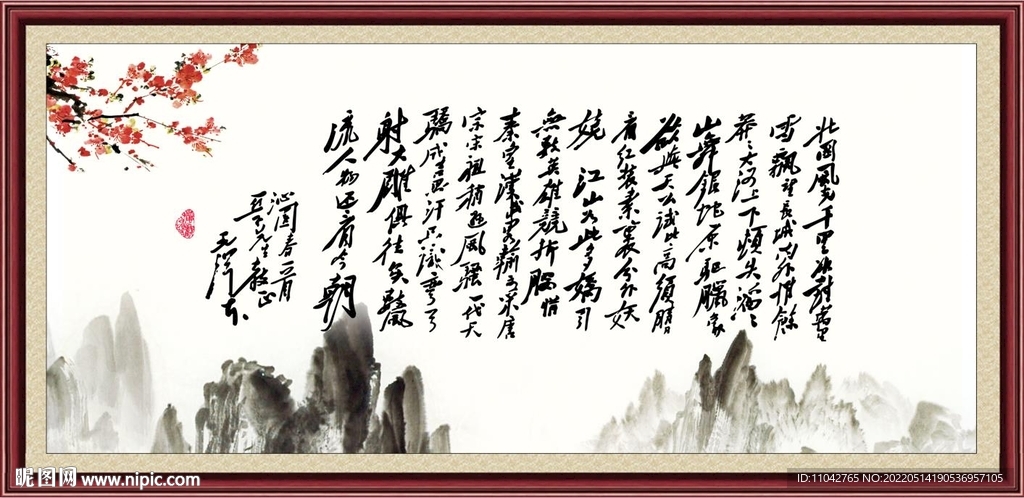 北国风光千里冰封万里
雪飘望长城内外惟余
莽莽大河上下顿失滔滔
山舞银蛇原驱腊象
欲与天公试比高须晴日
看红装素裹分外妖
娆 江山如此多娇引
無数英雄竞折腰惜
秦皇汉武略输文采唐
宗宋祖稍逊风骚一代天
骄成吉思汗只识弯弓
射大雕俱往矣数风
流人物还看今朝
沁园春一首
亚子先生教正
毛泽东
昵图网 www.nipic.com
ID:11042765 NO:20220514190536957105